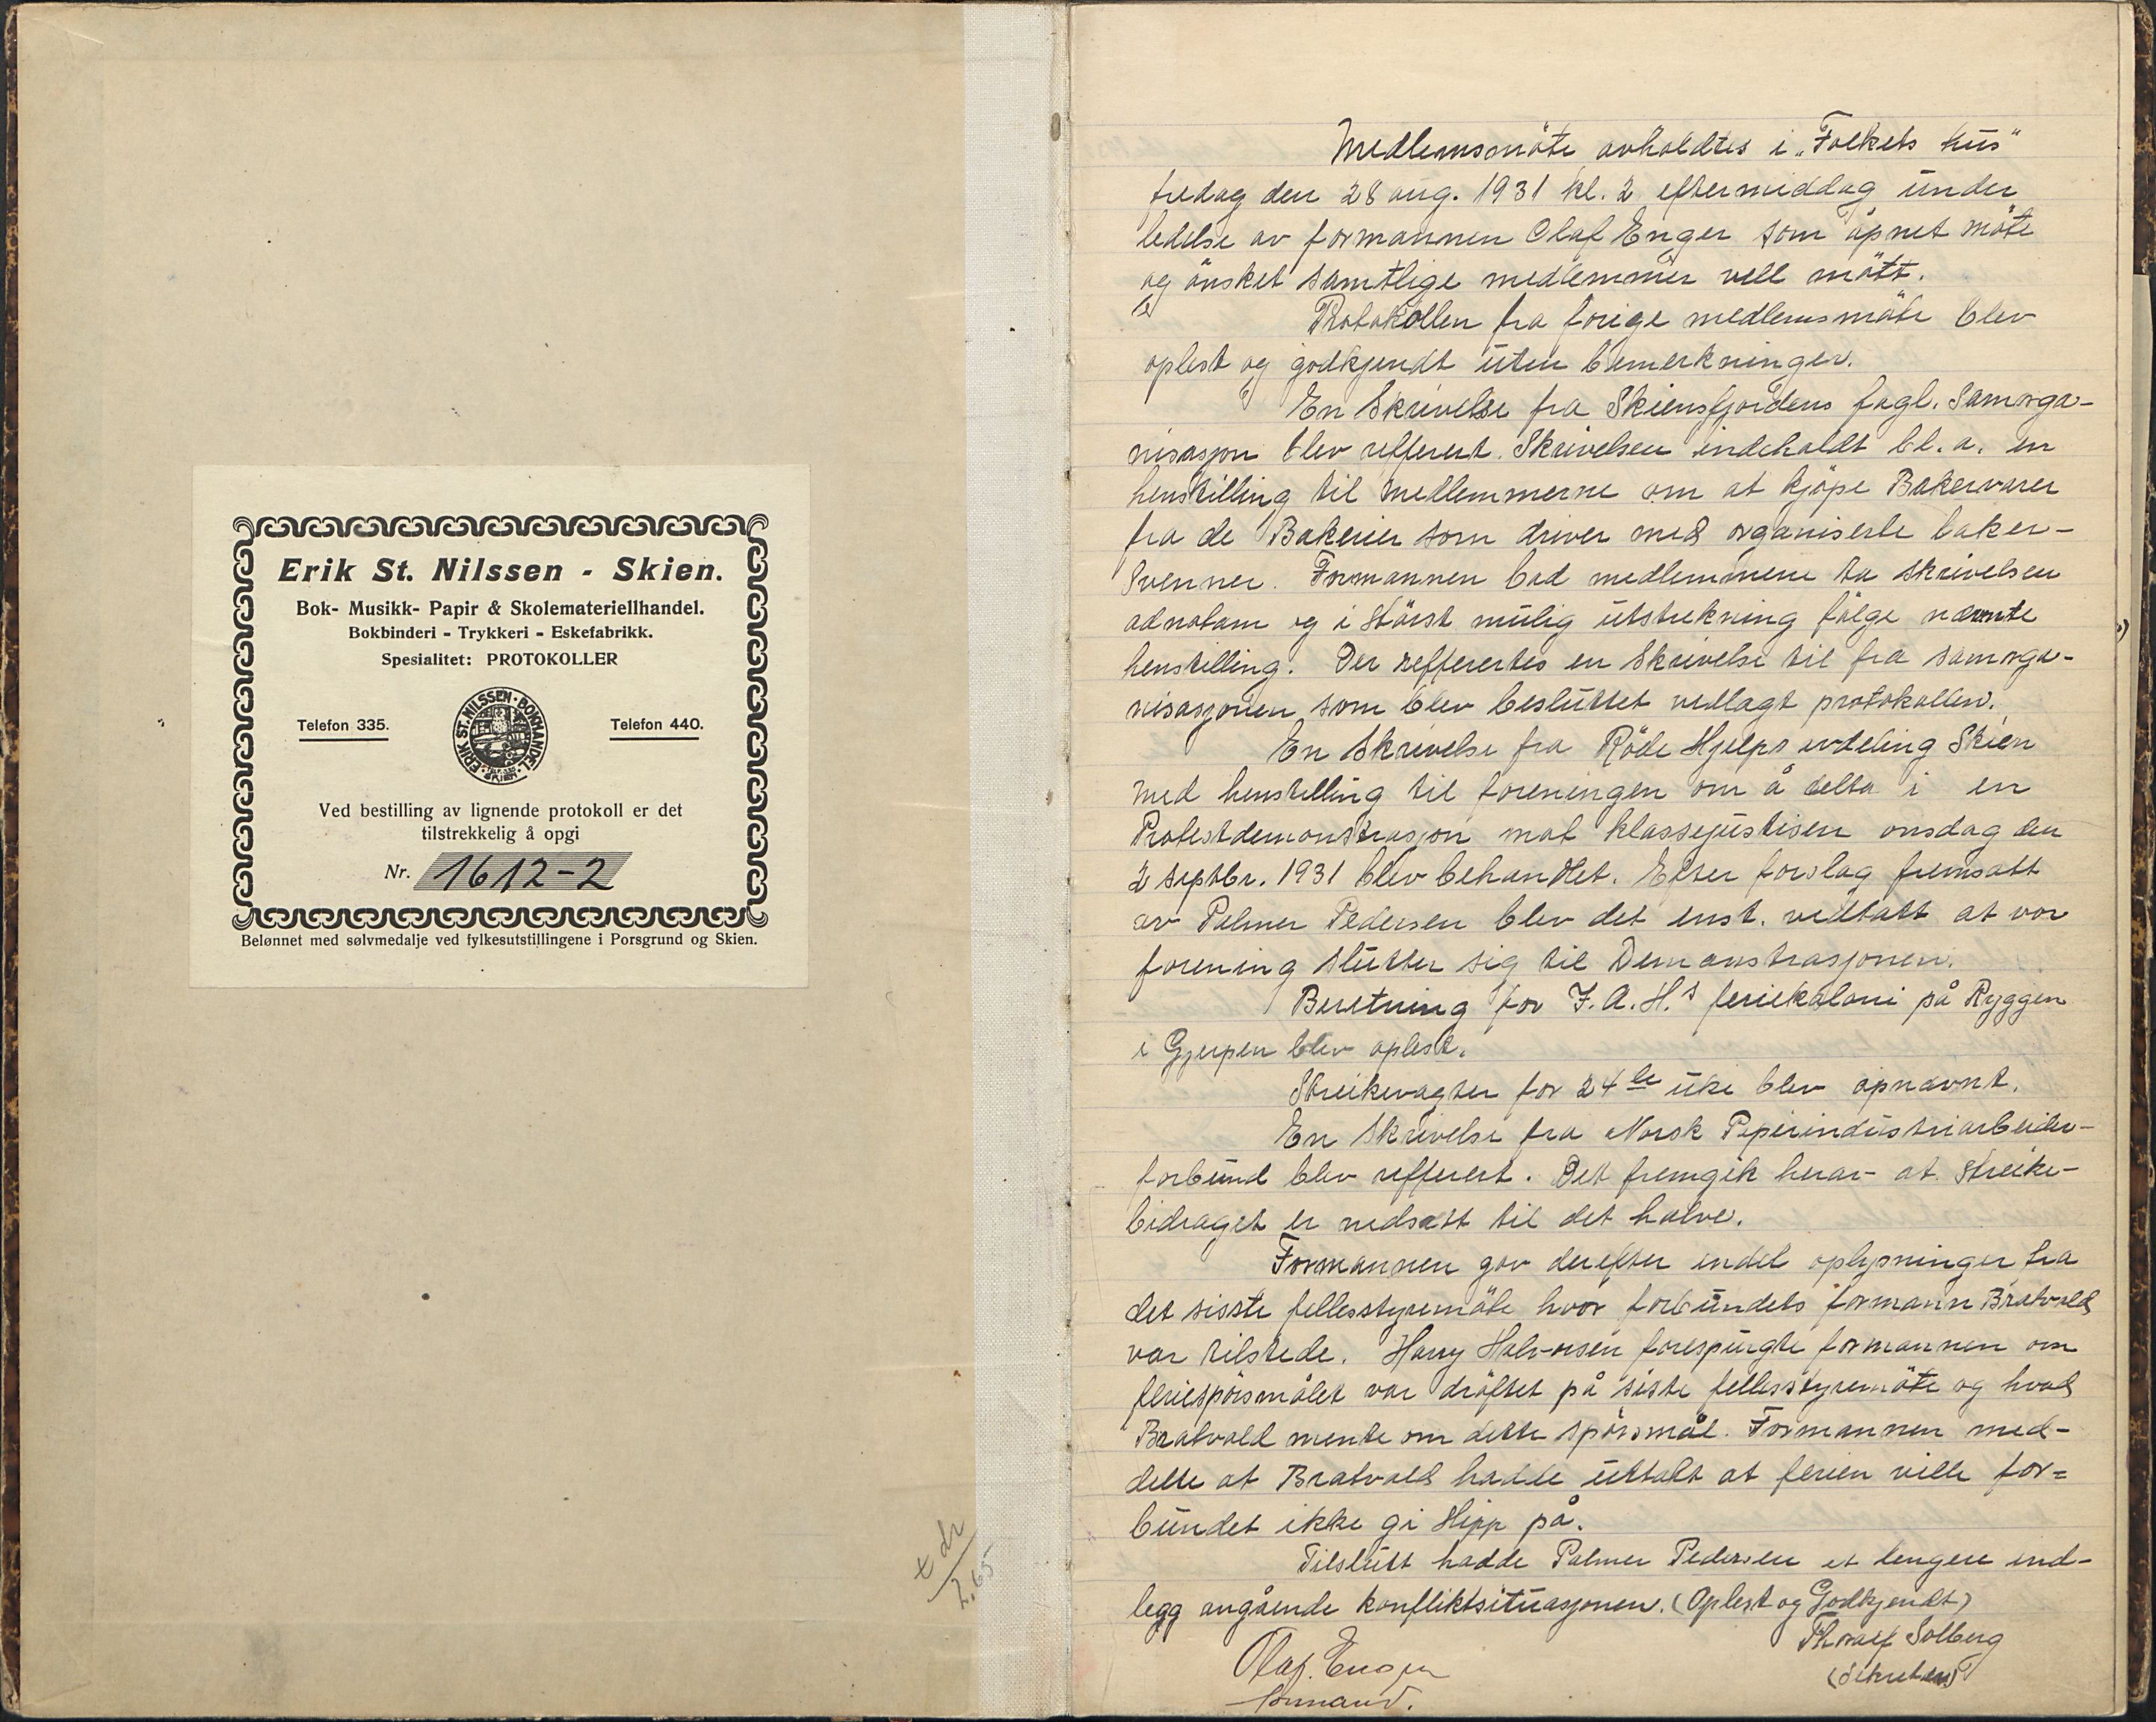 Erik St. Nilssen - Skien.
Bok- Musikk- Papir & Skolemateriellhandel.
Bokbinderi - Trykkeri - Eskefabrikk.
Spesialitet: PROTOKOLLER
Telefon 335.
ERIK ST. NILSSEN · BOKHANDEL · SKIEN
Telefon 440.
Ved bestilling av lignende protokoll er det
tilstrekkelig å opgi
Nr. 1612-2
Belønnet med sølvmedalje ved fylkesutstillingene i Porsgrund og Skien.
2,65
Medlemsmöte avholdtes i „Folkets hus"
fredag den 28 aug. 1931 kl. 2 eftermiddag under
ledelse av formannen Olaf Enger som åpnet möte
og önsket samtlige medlemmer vell mött.
Protokollen fra forige medlemsmöte blev
oplest og godkjendt uten bemerkninger.
En Skrivelse fra Skiensfjordens fagl. Samorga-
nisasjon blev refferert. Skrivelsen indeholdt bl. a. en
henstilling til medlemmerne om at kjöpe Bakervarer
fra de Bakerier som driver med organiserte baker-
Svenner. Formannen bad medlemmene ta skrivelsen
adnotam og i störst mulig utstrekning fölge nævnte
henstilling. Der refferertes en Skrivelse til fra samorga-
nisasjonen som blev besluttet vedlagt protokollen.
En Skrivelse fra Röde Hjelps avdeling Skien
med henstilling til foreningen om å delta i en
Protestdemonstrasjon mot klassejustisen onsdag den
2 septbr. 1931 blev behandlet. Efter forslag fremsatt
av Palmer Pedersen blev det enst. vedtatt at vor
forening slutter sig til Demonstrasjonen.
Beretning for F.A.H.s feriekoloni på Ryggen
i Gjerpen blev oplest.
Streikevagter for 24de uke blev opnævnt.
En Skrivelse fra Norsk Papirindustriarbeider-
forbund blev refferert. Det fremgik herav at Streike-
bidraget er nedsatt til det halve.
Formannen gav derefter endel oplysninger fra
det sisste fellesstyremöte hvor forbundets formann Bratvold
var tilstede. Harry Halvorsen forespurgte formannen om
feriespörsmålet var dröftet på siste fellesstyremöte og hvad
Bratvold mente om dette spörsmål. Formannen med-
delte at Bratvold hadde uttalt at ferien ville for=
bundet ikke gi slipp på.
Tilslutt hadde Palmer Pedersen et lengere ind-
legg angående konfliktsituasjonen. (Oplest og Godkjendt)
Thoralf Solberg
(Sekretær)
Olaf. Enger
formand.